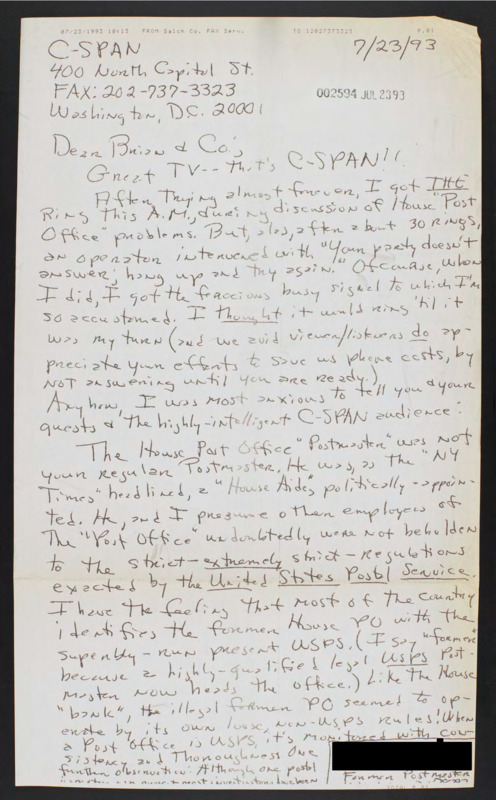 07/23/1993 10:13 FROM Salch Co. FAX Serv. TO 12027373323 P.01
C-SPAN 7/23/93
400 North Capitol St.
FAX: 202-737-3323
Washington, D.C. 20001
002594 JUL 23 93
Dear Brian & Co.,
Great TV -- that's C-SPAN!!
After, trying almost forever, I got THE
Ring this A.M., during discussion of House "Post
Office" problems. But, alas, after about 30 rings,
an operator intervened with "Your party doesn't
answer, hang up and try again." Of course, when
I did, I got the busy signal to which I'm
so accustomed. I thought it would ring 'til it
was my turn (and we avid viewer/listeners do ap-
preciate your efforts to save us phone costs, by
NOT answering until you are ready.)
Anyhow, I was most anxious to tell you & your
guests & the highly-intelligent C-SPAN audience:
The House Post Office "Postmaster" was not
your regular Postmaster. He was, as the "NY
Times" headlined, a "House Aide", politically-appoin-
ted. He, and I presume other employees of
The "Post Office" undoubtedly were not beholden
to the strict - extremely strict - regulations
exacted by the United States Postal Service.
I have the feeling that most of the country
identifies the former House PO with the
superbly-run present USPS. (I say "former"
because a highly-qualified legal USPS Post-
master now heads the office.) Like the House
"bank", the illegal former PO seemed to op-
erate by its own loose, non-USPS rules! When
a Post Office is USPS, it's monitored with con-
sistency and Thoroughness. One
further observation: Although one postal
Former Postmaster